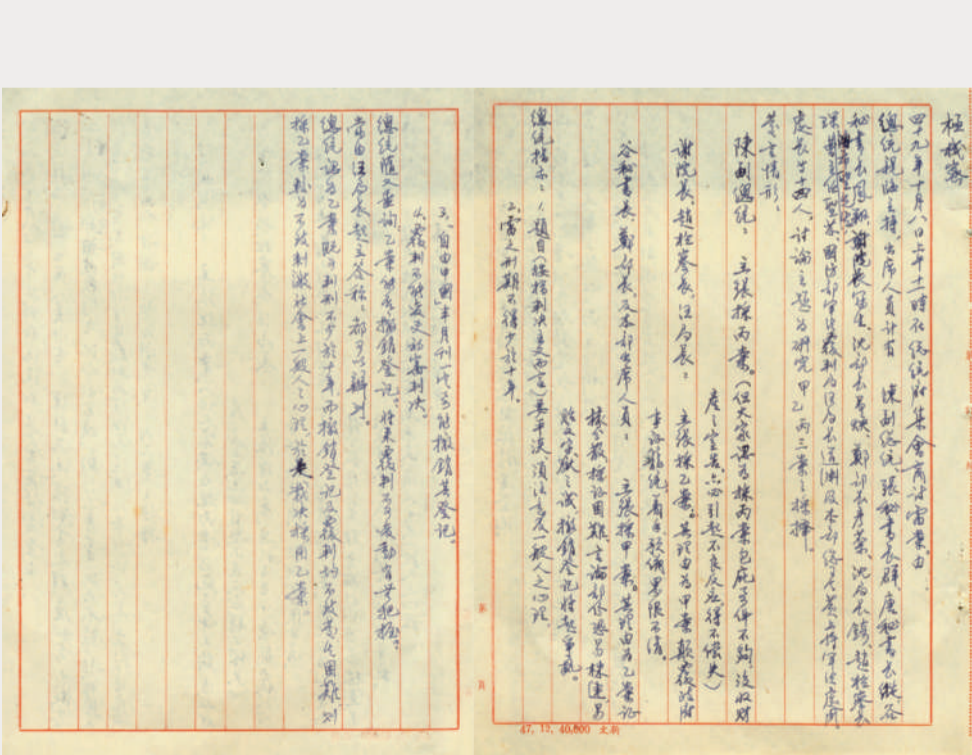 極機密
四十九年十月八日上午十一時在總統府集會商討雷案。由
總統親臨主持。出席人員計有 陳副總統、張秘書長群、唐秘書長縱、谷
秘書長鳳翔、謝院長冠生、沈部長昌煥、鄭部長彥棻、沈局長錡、趙檢察長
琛、國防部軍法覆判局汪局長道淵及本部
處長等十四人。討論主題為研究甲乙丙三案之採擇。
發言情形:
陳副總統: 主張採丙案。(但大家認為採丙案包庇要件不夠,沒收財
產之宣告,亦必引起不良反應,得不償失)
謝院長、趙檢察長、汪局長: 主張採乙案。其理由為甲案顛覆政府
李
谷秘書長、鄭部長、及本部出席人員: 主張採甲案。其理由為乙案證
據分散,採證困難,言論部份恐易
文字獄之譏,撤銷登記將起爭執。
總統指示: 1.題目(按指判決主文而言)要平淡,須注意及一般人之心理。
2.雷之刑期不得少於十年。
3.《自由中國》半月刊一定要能撤銷其登記。
4.覆判不能變更初審判決。
總統旋又垂詢:乙案能否撤銷登記。將來覆判不可變動有無把握。
當由汪局長起立答稱:都可以辦到。
總統認為乙案既可判刑不少於十年,而撤銷登記及覆判均不致發生困難,則
採乙案較為不致刺激社會上一般人之心理,於是裁決採用乙案。
第 頁
47. 12. 40,000 北新